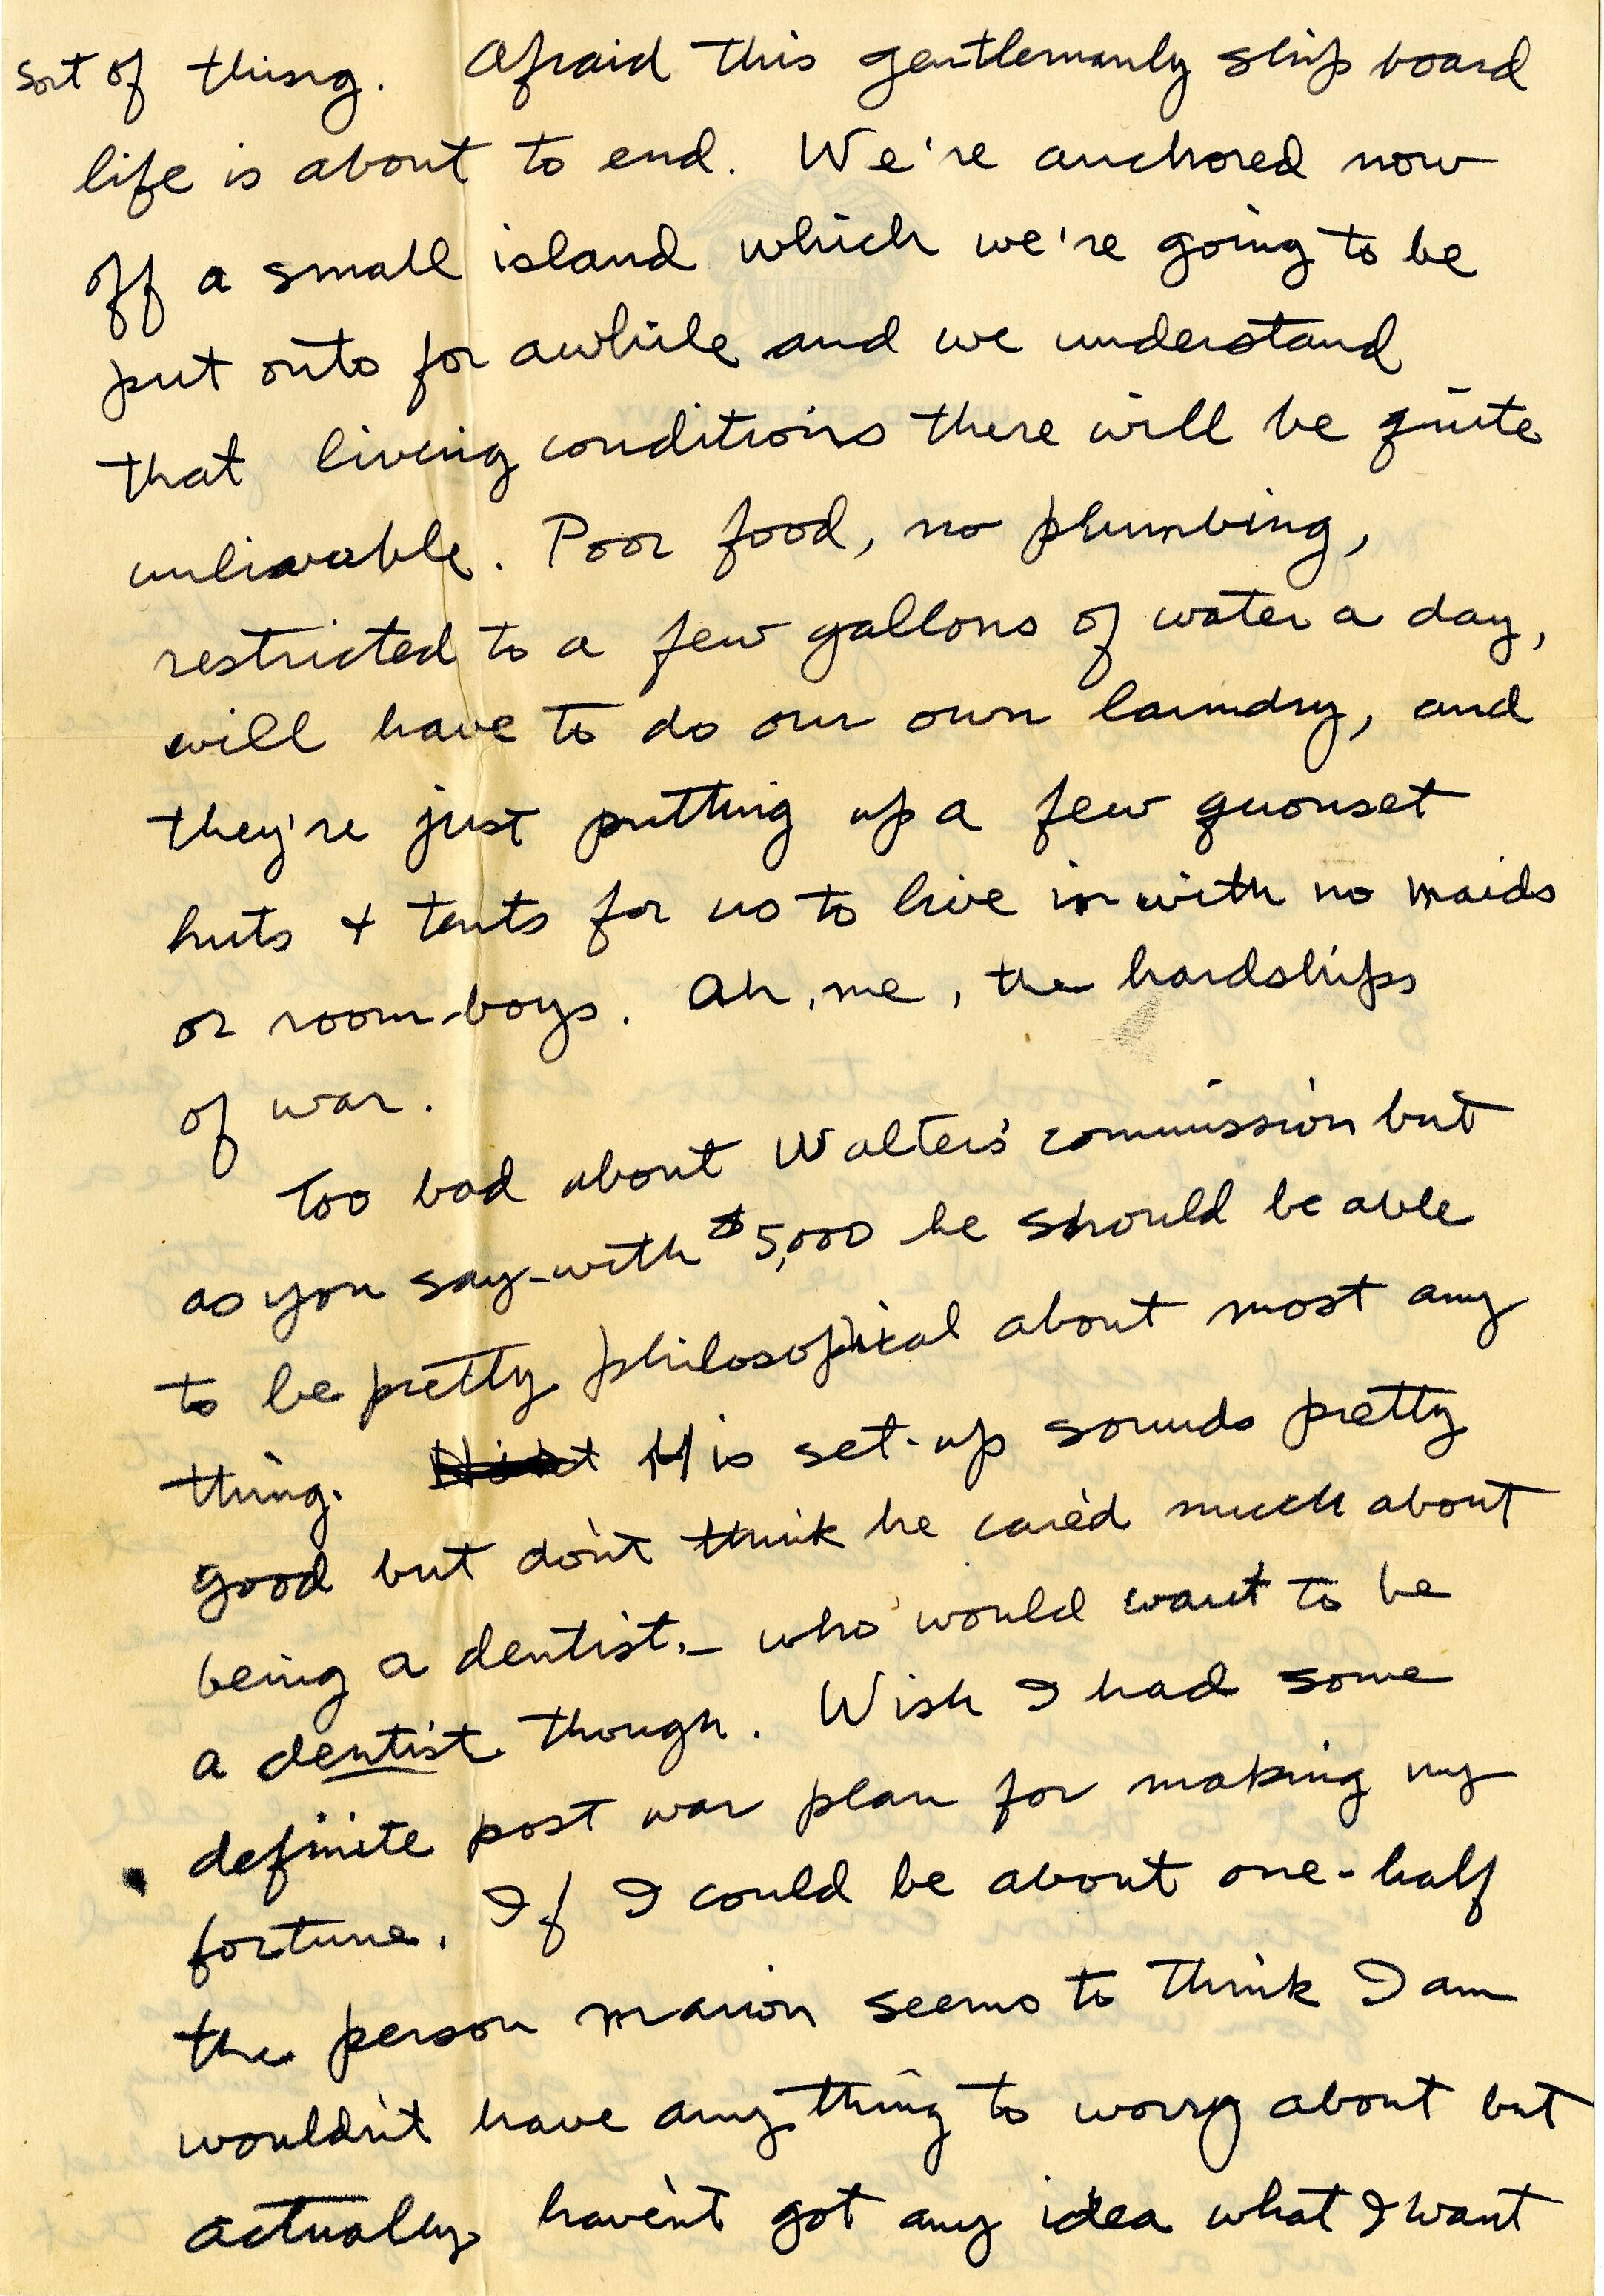 sort of thing. Afraid this gentlemanly ship board
life is about to end. We're anchored now
off a small island which we're going to be
put onto for awhile and we understand
that living conditions there will be quite
unlivable. Poor food, no plumbing,
restricted to a few gallons of water a day,
will have to do our own laundry, and
they're just putting up a few quonset
huts + tents for us to live in with no maids
or room-boys. Ah, me, the hardships
of war.
Too bad about Walter's commission but
as you say-with $5,000 he should be able
to be pretty philosophical about most any
thing. His set-up sounds pretty
good but don't think he care'd much about
being a dentist.- who would want to be
a dentist though. Wish I had some
definite post war plan for making my
fortune. If I could be about one-half
the person Marion seems to think I am
wouldn't have any thing to worry about but
actually haven't got any idea what I want